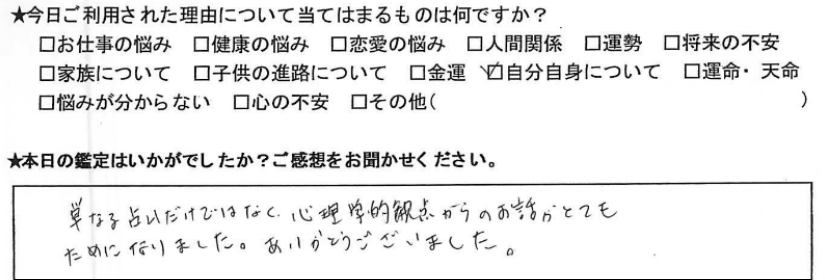 ★今日ご利用された理由について当てはまるものは何ですか？
□お仕事の悩み □健康の悩み □恋愛の悩み □人間関係 □運勢 □将来の不安
□家族について □子供の進路について □金運 ☑自分自身について □運命・天命
□悩みが分からない □心の不安 □その他( )
★本日の鑑定はいかがでしたか？ご感想をお聞かせください。
単なる占いだけではなく、心理学的観点からのお話がとても
ためになりました。ありがとうございました。